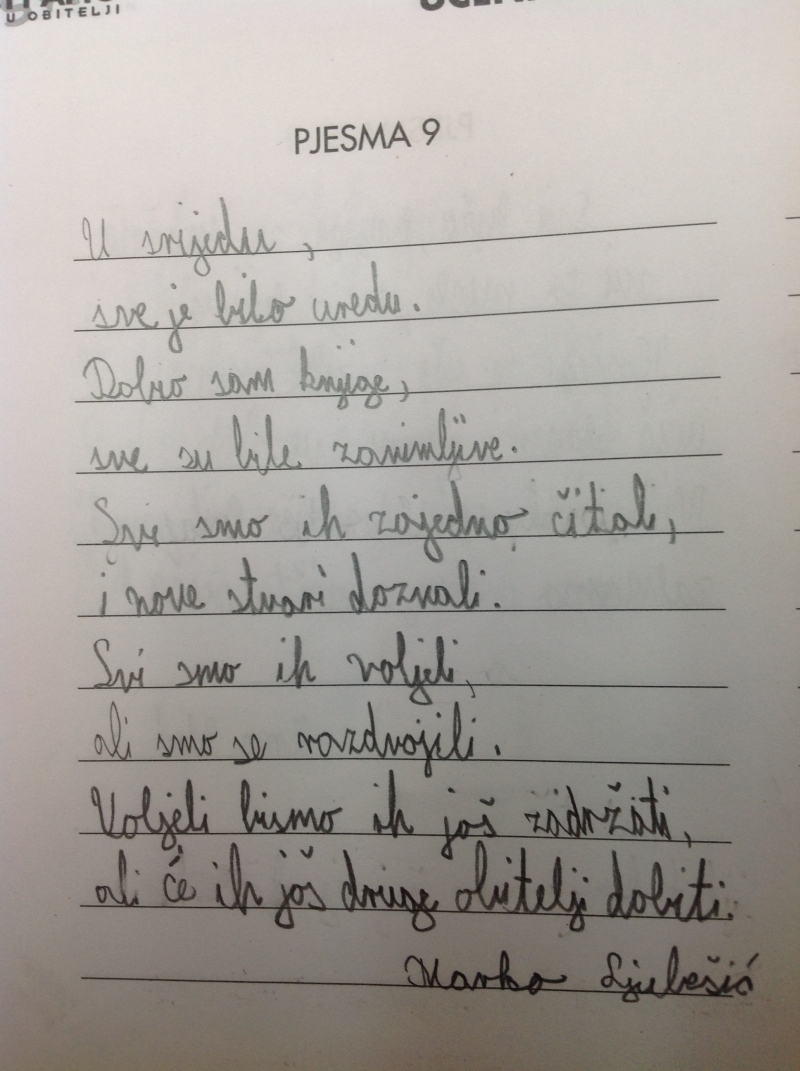 U OBITELJI
PJESMA 9
U srijedu,
sve je bilo uredu.
Dobio sam knjige,
sve su bile zanimljive.
Svi smo ih zajedno čitali,
i nove stvari doznali.
Svi smo ih voljeli,
ali smo se razdvojili.
Voljeli bismo ih još zadržati,
ali će ih još druge obitelji dobiti.
Marko Ljubešić